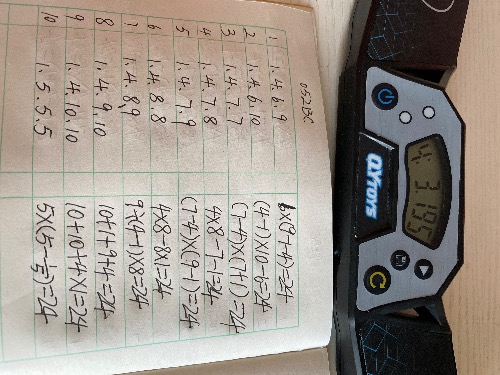 1. 1.4.6.9 6×(9-1-4)=24
2 1.4.6.10 (4-1)×10-6=24
3 1.4.7.7 (7-4)×(7+1)=24
4 1.4.7.8 4×8-7-1=24
5 1.4.7.9 (7-4)×(9-1)=24
6 1.4.8.8 4×8-8×1=24
7 1.4.8.9 9÷(4-1)×8=24
8 1.4.9.10 10+1+9+4=24
9 1.4.10.10 10+10+4×1=24
10 1.5.5.5 5×(5-1/5)=24
QYTOYS